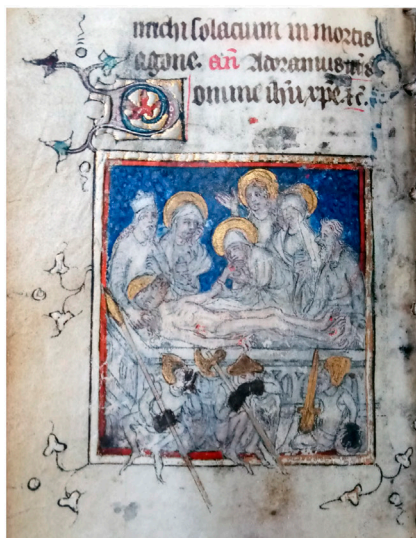 michi solacium in mortis
agone. añ Adoramus
Domine ihū xpe. ⁊c̄.